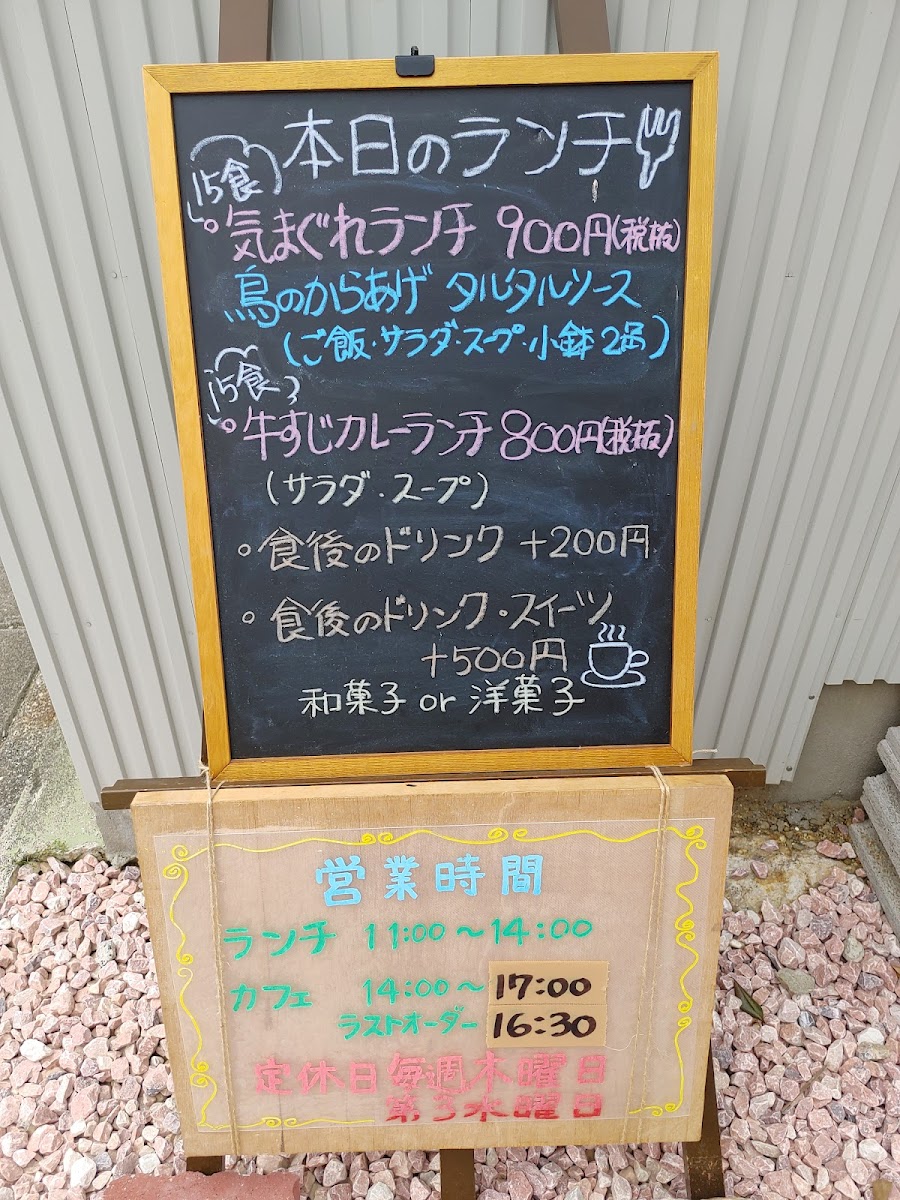 本日のランチ
15食
○気まぐれランチ 900円(税抜)
鳥のからあげ タルタルソース
(ご飯・サラダ・スープ・小鉢2品)
15食
○牛すじカレーランチ 800円(税抜)
(サラダ・スープ)
○食後のドリンク +200円
○食後のドリンク・スイーツ
+500円
和菓子 or 洋菓子
営業時間
ランチ 11:00～14:00
カフェ 14:00～17:00
ラストオーダー 16:30
定休日 毎週木曜日
第3水曜日